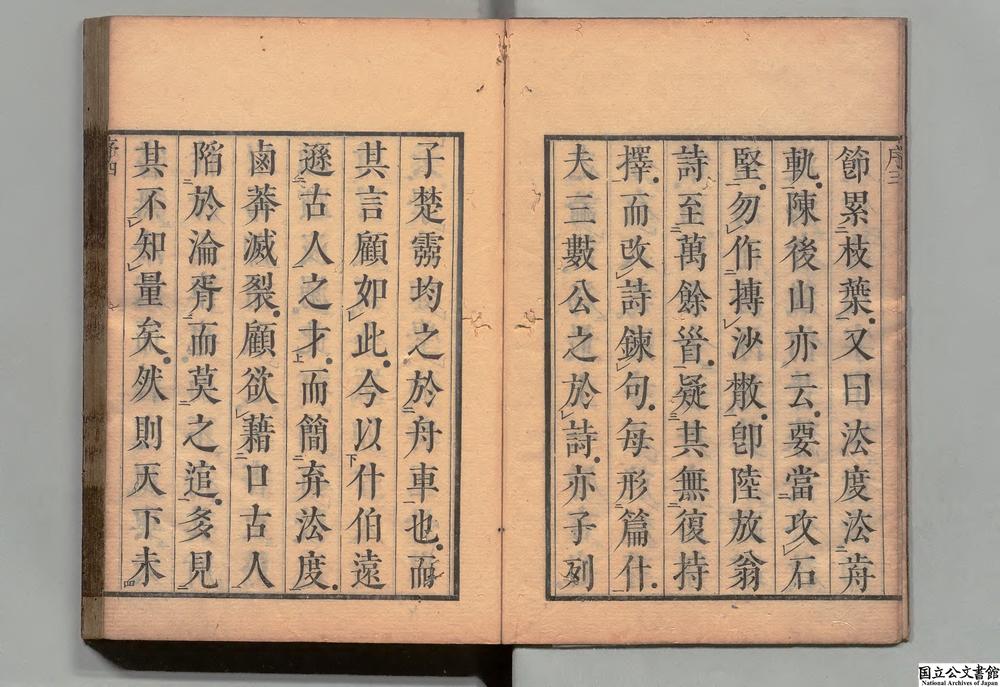 序三
節累枝葉又曰法度法歬
軌陳後山亦云要當攻石
堅勿作摶沙散卽陸放翁
詩至萬餘首疑其無復持
擇而改詩鍊句每形篇什
夫三數公之於詩亦子列
子楚霛均之於舟車也而
其言顧如此今以什伯遠
遜古人之才而簡弃法度
鹵莽滅裂顧欲藉口古人
陷於淪胥而莫之逭多見
其不知量矣然則天下未
序四
国立公文書館
National Archives of Japan